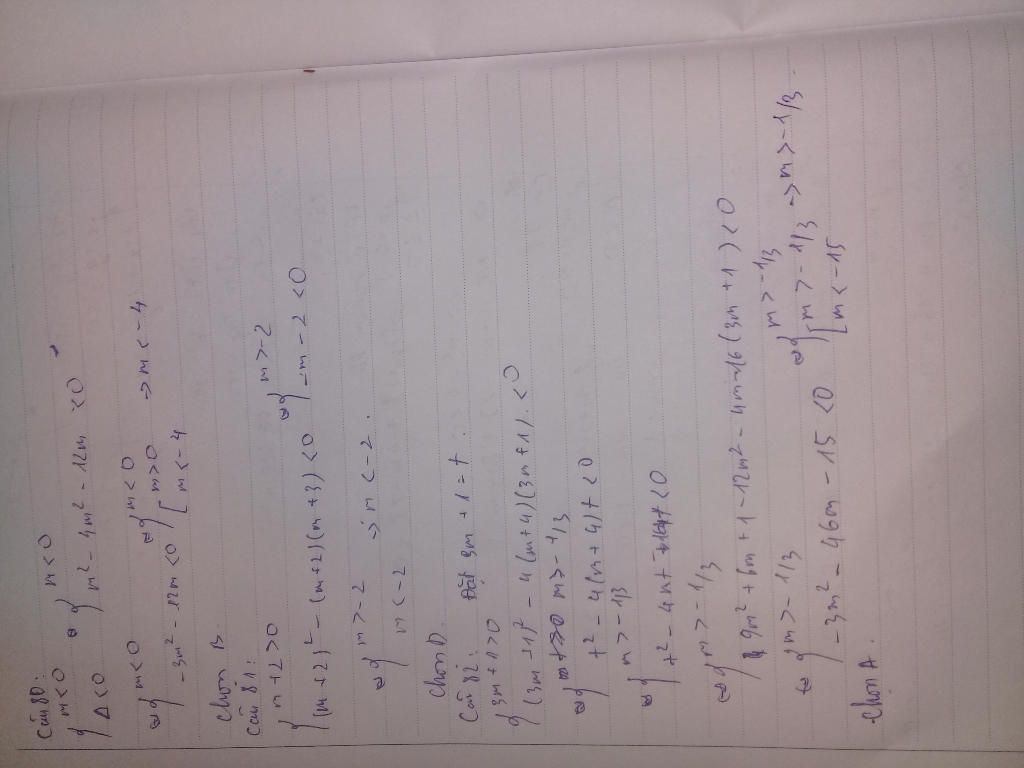 Câu 80:
{ m < 0
Δ < 0 ⇔ { m < 0
m² - 4m² - 12m < 0
⇔ { m < 0
- 3m² - 12m < 0 ⇔ { m < 0
[ m > 0
m < - 4 → m < - 4
Chọn B.
Câu 81:
{ m + 2 > 0
(m + 2)² - (m + 2)(m + 3) < 0 ⇔ { m > - 2
- m - 2 < 0
⇔ { m > - 2
m < - 2 → m < - 2.
Chọn D.
Câu 82: Đặt 3m + 1 = t.
{ 3m + 1 > 0
(3m + 1)² - 4(m + 4)(3m + 1) < 0
⇔ { m > - 1/3
t² - 4(m + 4)t < 0
⇔ { m > - 1/3
t² - 4mt - 16t < 0
⇔ { m > - 1/3
9m² + 6m + 1 - 12m² - 4m - 16(3m + 1) < 0
⇔ { m > - 1/3
- 3m² - 46m - 15 < 0 ⇔ { m > - 1/3
[ m > - 1/3
m < - 15 → m > - 1/3.
Chọn A.